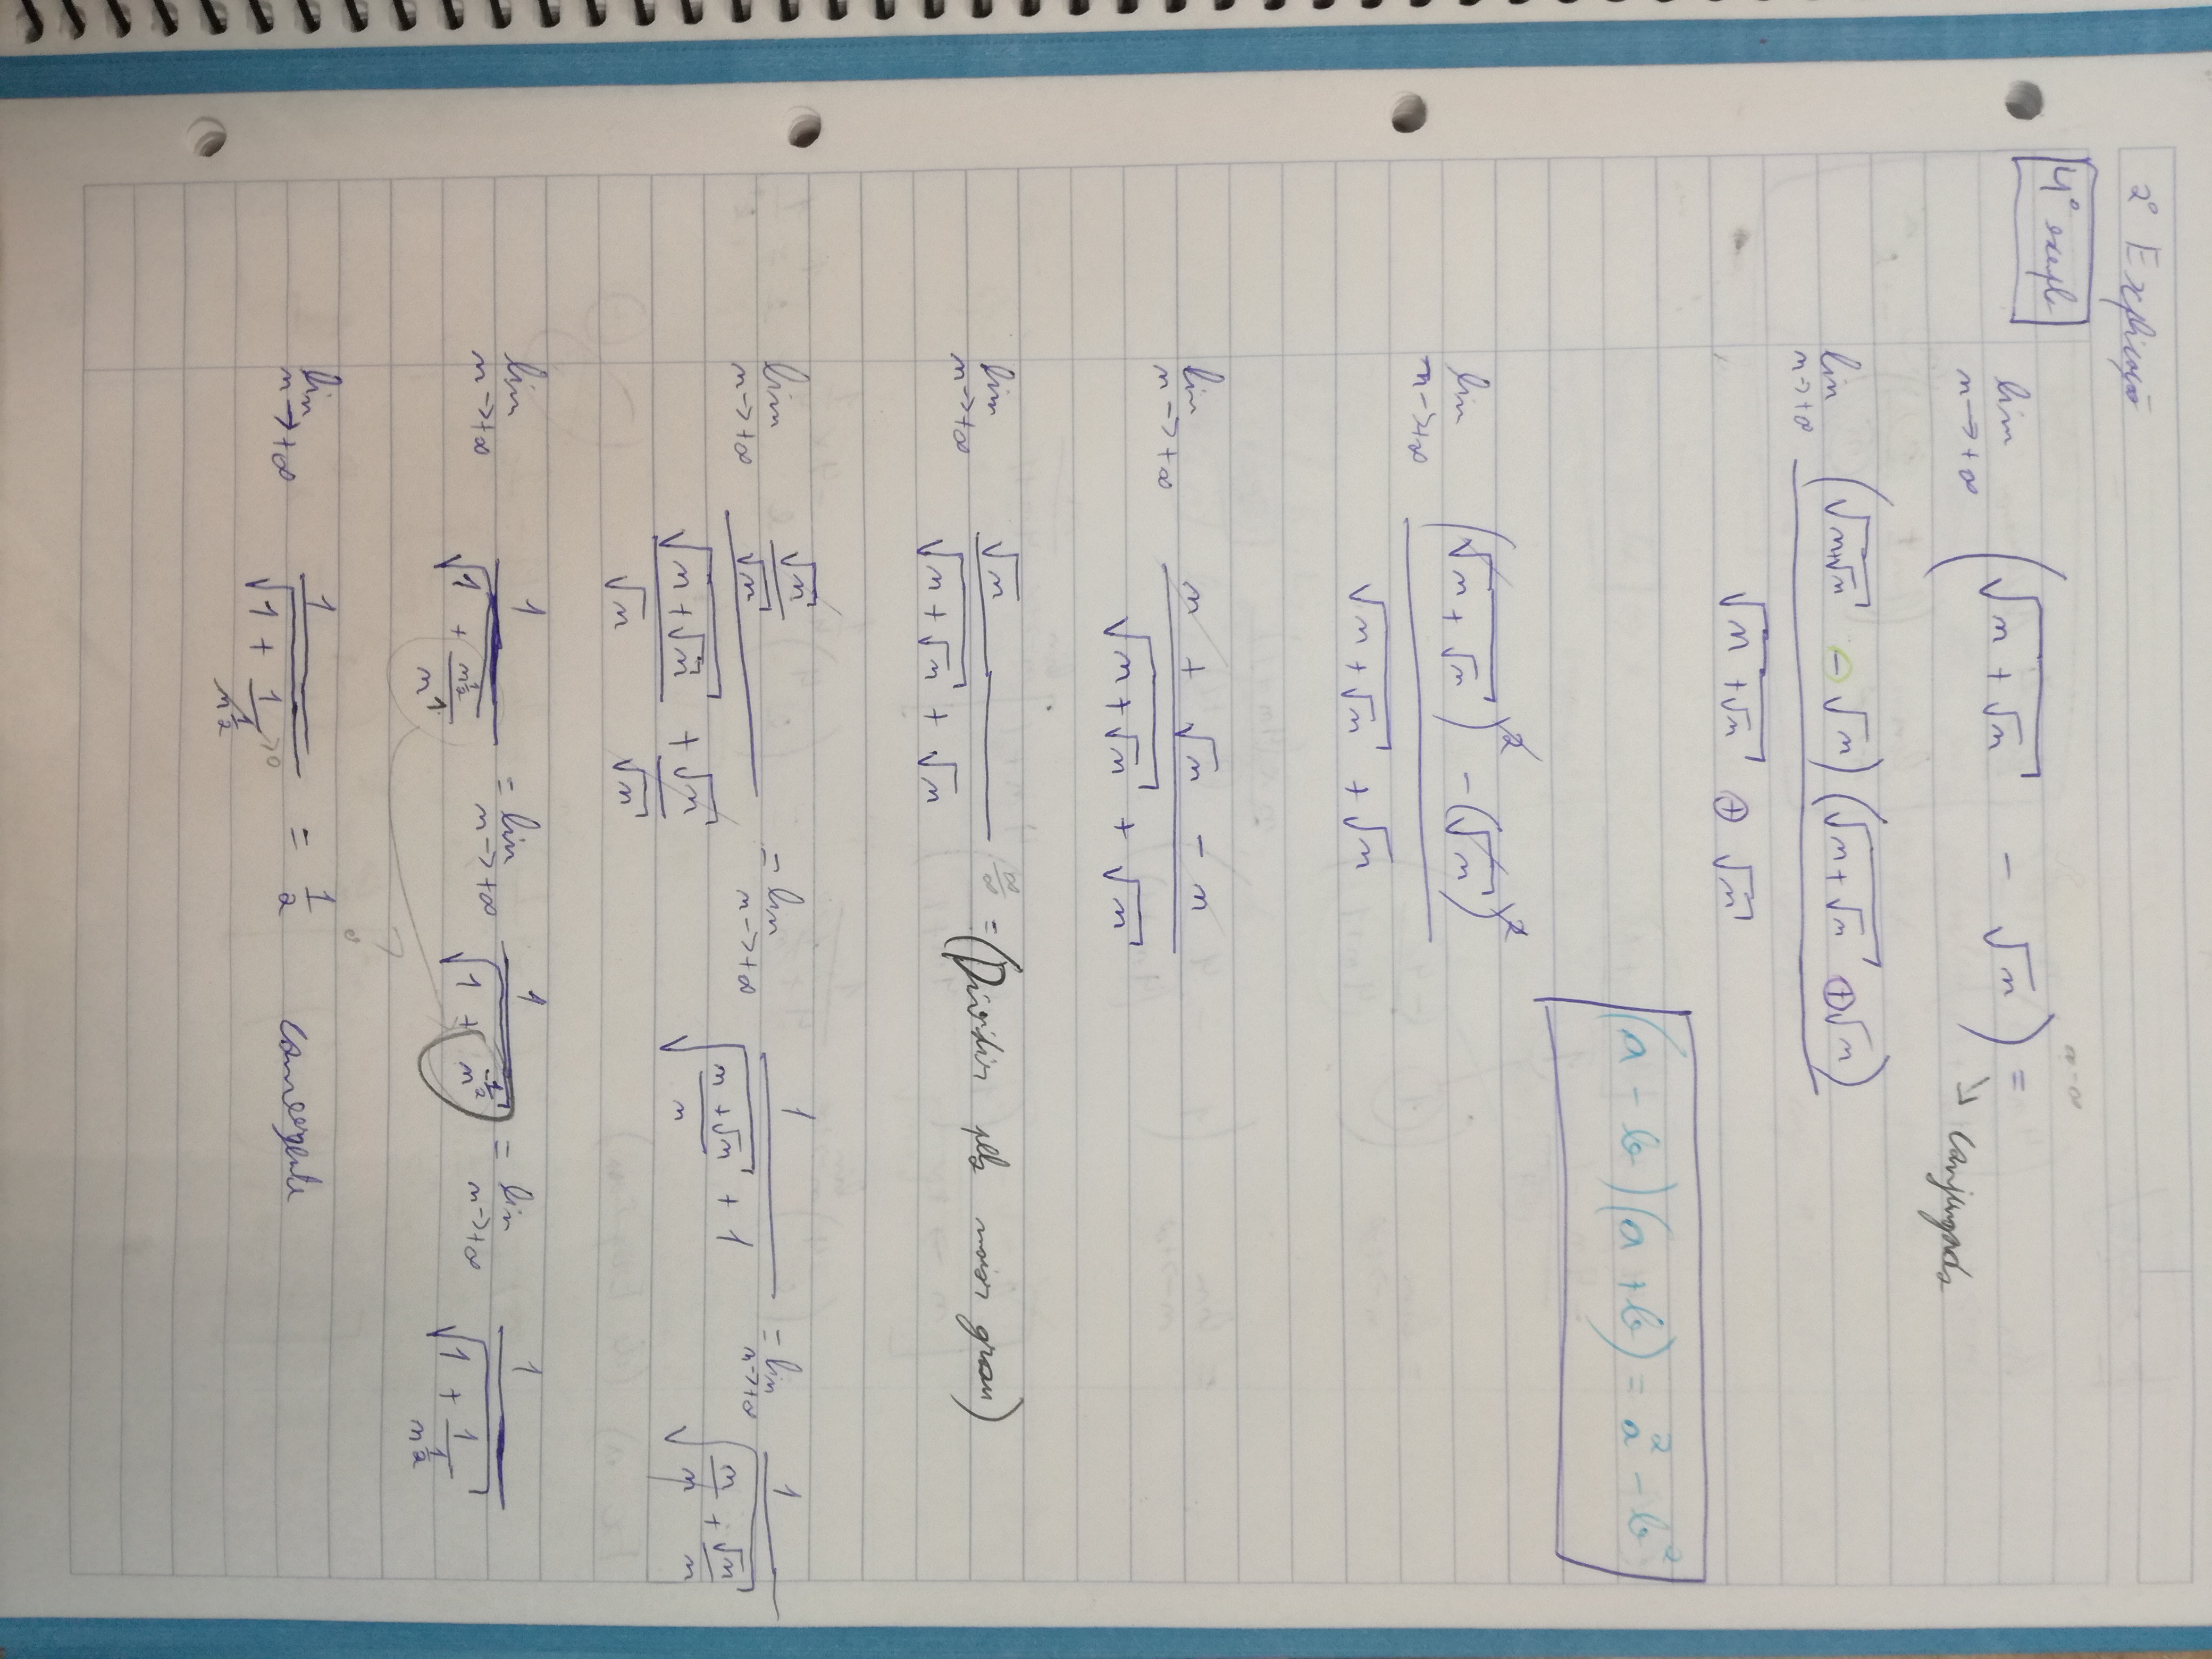 2º Explicação
4º exempl.
lim n→+∞ (√(n + √n) - √n) = ∞-∞
↳ Conjugado
lim n→+∞ ((√(n+√n) - √n)(√(n + √n) + √n)) / (√(n + √n) + √n)
(a - b)(a + b) = a² - b²
lim n→+∞ ((√(n + √n))² - (√n)²) / (√(n + √n) + √n)
lim n→+∞ (n + √n - n) / (√(n + √n) + √n)
lim n→+∞ √n / (√(n + √n) + √n) ∞/∞ = (Dividir pelo maior grau)
lim n→+∞ (√n/√n) / (√(n + √n)/√n + √n/√n) = lim n→+∞ 1 / (√((n + √n)/n) + 1) = lim n→+∞ 1 / √(n/n + √n/n)
lim n→+∞ 1 / √(1 + n^(1/2)/n¹) = lim n→+∞ 1 / √(1 + n^(-1/2)) = lim n→+∞ 1 / √(1 + 1/n^(1/2))
lim n→+∞ 1 / √(1 + 1/n^(1/2)) →0 = 1/2 Convergente